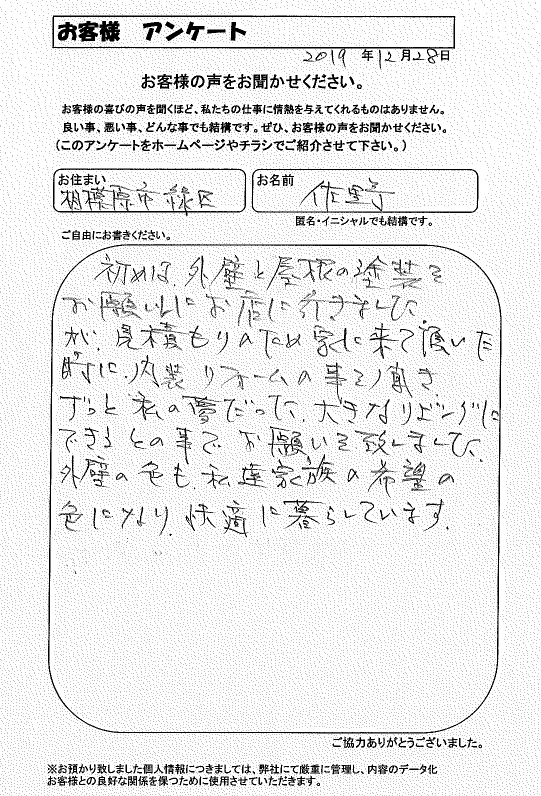 お客様 アンケート
2019 年 12 月 28 日
お客様の声をお聞かせください。
お客様の喜びの声を聞くほど、私たちの仕事に情熱を与えてくれるものはありません。
良い事、悪い事、どんな事でも結構です。ぜひ、お客様の声をお聞かせください。
(このアンケートをホームページやチラシでご紹介させて下さい。)
お住まい
相模原市 緑区
お名前
佐野
匿名・イニシャルでも結構です。
ご自由にお書きください。
初めは、外壁と屋根の塗装を
お願いにお店に行きました
が、見積もりのため家に来て頂いた
時に、内装リフォームの事を
ずっと私の夢だった、大きなリビングに
できるとの事で お願いを致しました。
外壁の色も 私達家族の希望の
色になり、快適に暮らしています。
ご協力ありがとうございました。
※お預かり致しました個人情報につきましては、弊社にて厳重に管理し、内容のデータ化
お客様との良好な関係を保つために使用させていただきます。